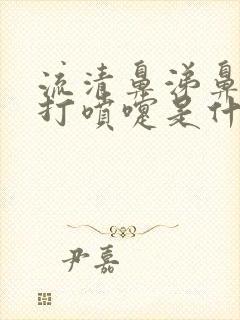 流清鼻涕鼻
打喷嚏是什
尹嘉